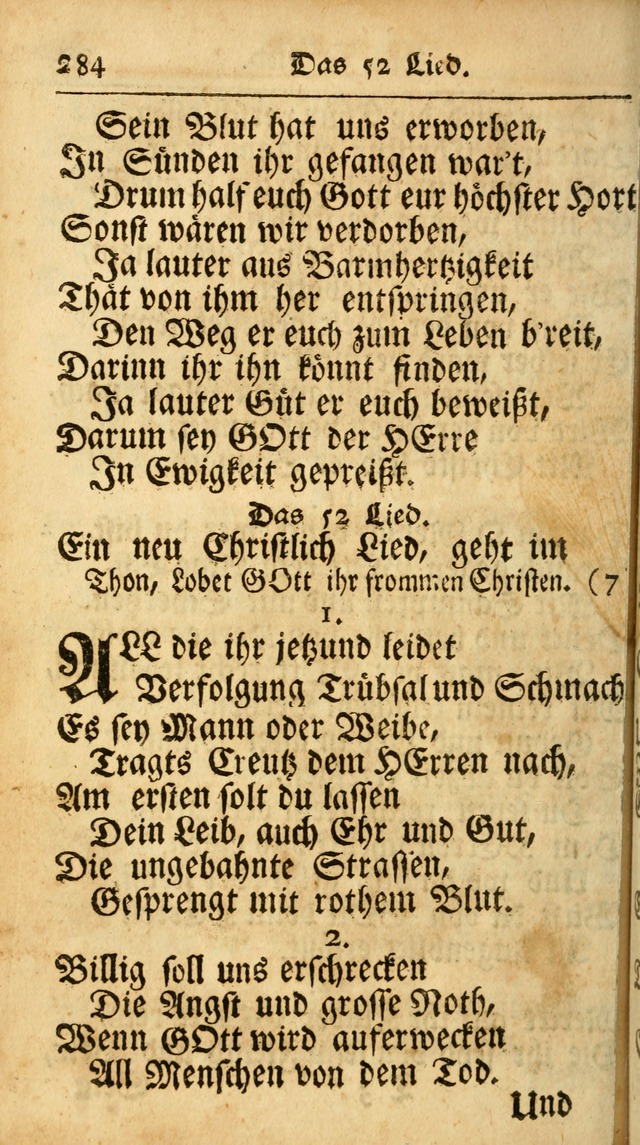 284 Das 52 Lied.
Sein Blut hat uns erworben,
In Sünden ihr gefangen war't,
Drum half euch Gott eur höchster Hort
Sonst wären wir verdorben,
Ja lauter aus Barmhertzigkeit
Thät von ihm her entspringen,
Den Weg er euch zum Leben b'reit,
Darinn ihr ihn könnt finden,
Ja lauter Güt er euch beweißt,
Darum sey GOtt der HErre
In Ewigkeit gepreißt.
Das 52 Lied.
Ein neu Christlich Lied, geht im
Thon, Lobet GOtt ihr frommen Christen. (7
1.
ALL die ihr jetzund leidet
Verfolgung Trübsal und Schmach
Es sey Mann oder Weibe,
Tragts Creutz dem HErren nach,
Am ersten solt du lassen
Dein Leib, auch Ehr und Gut,
Die ungebahnte Strassen,
Gesprengt mit rothem Blut.
2.
Billig soll uns erschrecken
Die Angst und grosse Noth,
Wenn GOtt wird auferwecken
All Menschen von dem Tod.
Und